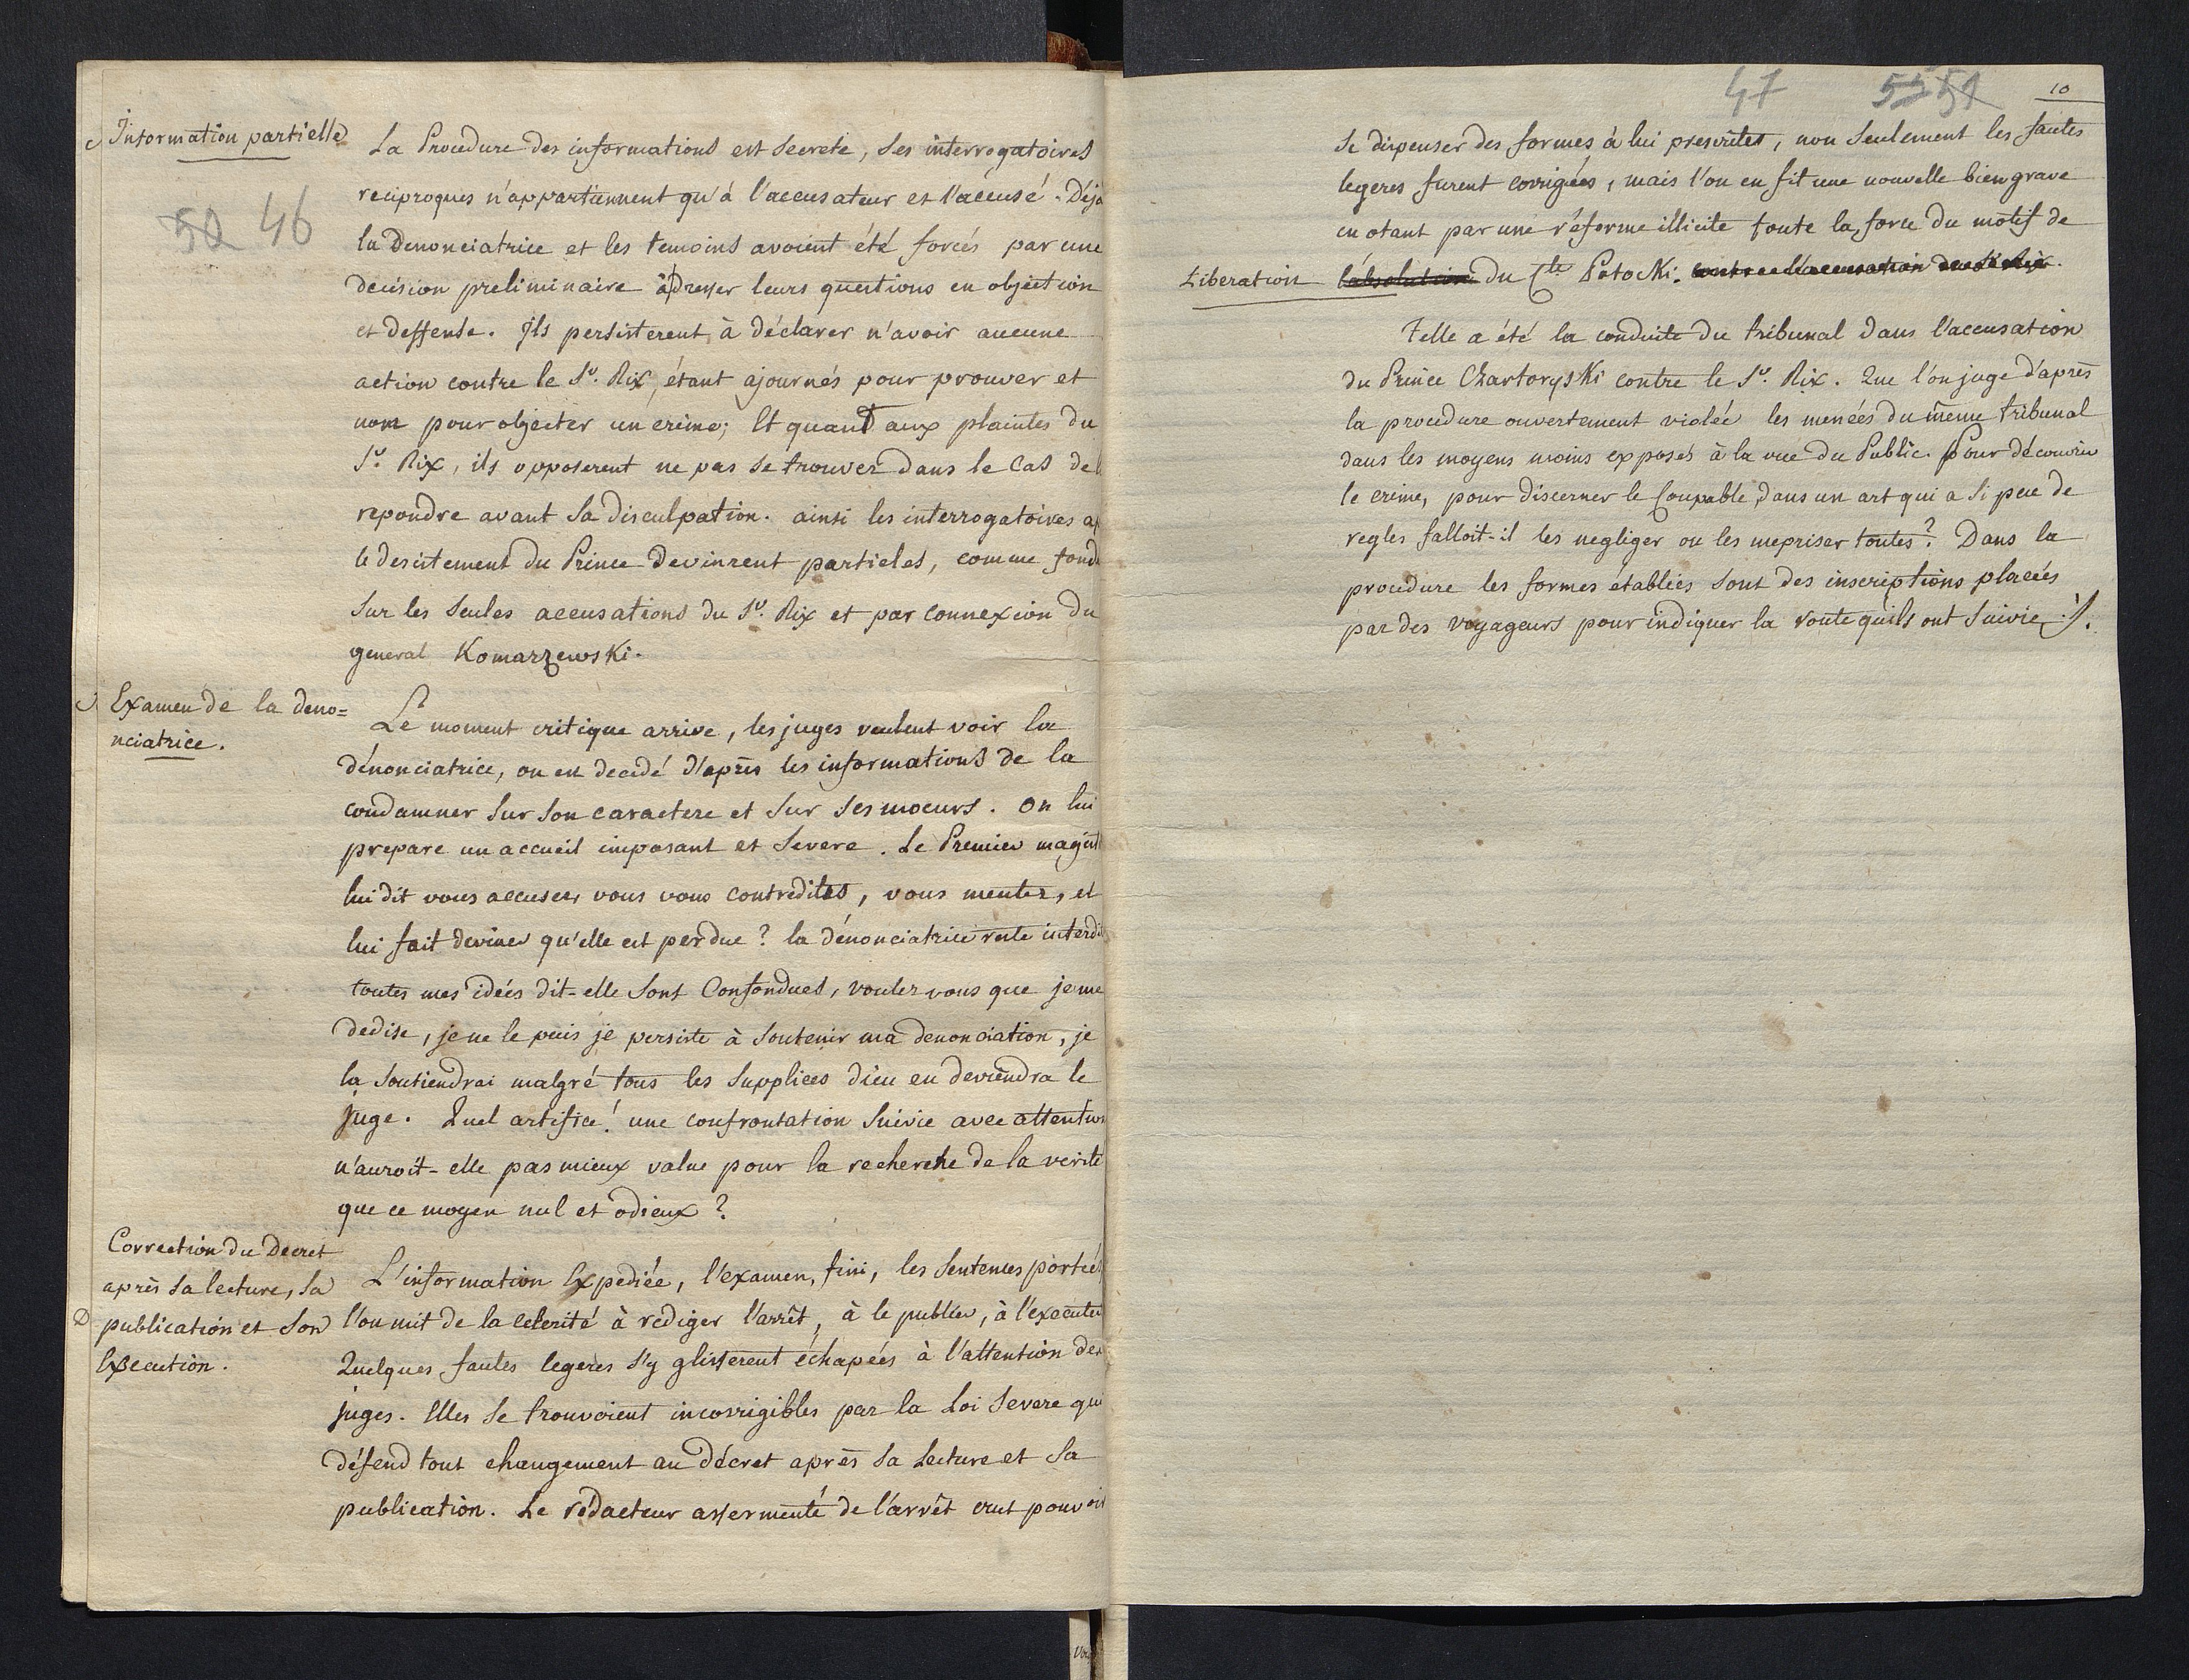 Information partielle
50 46
La Procedure des informations est secrete, ses interrogatoires
reciproques n'appartiennent qu'à l'accusateur et l'accusé. Déja
la denonciatrice et les temoins avoient été forcés par une
decision preliminaire àdresser leurs questions en objection
et deffense. Ils persisterent à déclarer n'avoir aucune
action contre le Sr. Rix, étant ajournés pour prouver et
non pour objecter un crime; Et quant aux plaintes du
Sr. Rix, ils opposerent ne pas se trouver dans le cas de
repondre avant sa disculpation. ainsi les interrogatoires
le desistement du Prince devinrent partieles, comme fond
sur les seules accusations du Sr. Rix et par connexion du
general Komarzewski.
Examen de la deno=
nciatrice.
Le moment critique arrive, les juges veulent voir la
dénonciatrice, on en decidé d'après les informations de la
condamner sur son caractere et sur ses moeurs. On lui
prepare un accueil imposant et severe. Le Premier magist
lui dit vous accusez, vous vous contredites, vous mentez, et
lui fait deviner qu'elle est perdue? la dénonciatrice reste interdi
toutes mes idées dit-elle sont Confondues, voulez vous que je me
dedise, je ne le puis je persiste à soutenir ma denonciation, je
la soutiendrai malgré tous les supplices dieu en deviendra le
juge. Quel artifice! une confrontation suivie avec attention
n'auroit-elle pas mieux value pour la recherche de la verité
que ce moyen nul et odieux?
Correction du Decret
après sa lecture, sa
publication et son
Execution.
L'information Expediée, l'examen, fini, les sentences portées
l'on mit de la celerité à rediger l'arrêt, à le publier, à l'executer
Quelques fautes legeres s'y glisserent échapées à l'attention des
juges. Elles se trouvoient incorrigibles par la Loi severe qui
défend tout changement au décret après sa Lecture et sa
publication. Le rédacteur assermenté de l'arrêt crut pouvoir
47 10
se dispenser des formes à lui prescrites, non seulement les fautes
legeres furent corrigées, mais l'on en fit une nouvelle bien grave
en otant par une réforme illicite toute la force du motif de
Liberation l'absolution du Cte Potocki. contre l'accusation de Sr Rix.
Telle a été la conduite du tribunal dans l'accusation
du Prince Chartoryski contre le Sr. Rix. Que l'on juge d'après
la procedure ouvertement violée les menées du même tribunal
dans les moyens moins exposés à la vue du Public. Pour découvrir
le crime, pour discerner le Coupable, dans un art qui a si peu de
regles falloit-il les negliger ou les mepriser toutes? Dans la
procedure les formes établies sont des inscriptions placées
par des voyageurs pour indiquer la route quils ont suivie.